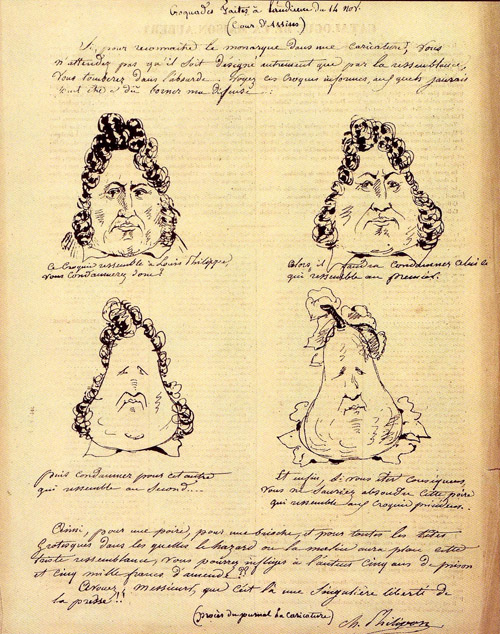 Croquades faites à l'audience du 14 Nov.
(Cour d'Assises)
Si, pour reconnaitre le monarque dans une caricature, vous
n'attendez pas qu'il soit désigné autrement que par la ressemblance,
vous tomberez dans l'absurde. Voyez ces croquis informes, aux quels j'aurais
peut-être dû borner ma défense :
Ce croquis ressemble à Louis Philippe,
vous condamnerez donc ?
Alors il faudra condamner celui-ci
qui ressemble au premier.
Puis condamner pour cet autre
qui ressemble au second....
Et enfin, si vous êtes conséquens,
vous ne sauriez absoudre cette poire
qui ressemble aux croquis précédens.
Ainsi, pour une poire, pour une brioche, et pour toutes les têtes
grotesques dans les quelles le hazard ou la malice aura placé cette
triste ressemblance, vous pourrez infliger à l'auteur cinq ans de prison
et cinq mille francs d'amende ??
Avouez, Messieurs, que c'est là une singulière liberté de
la presse !!
(procès du journal La caricature)
Ch. Philipon